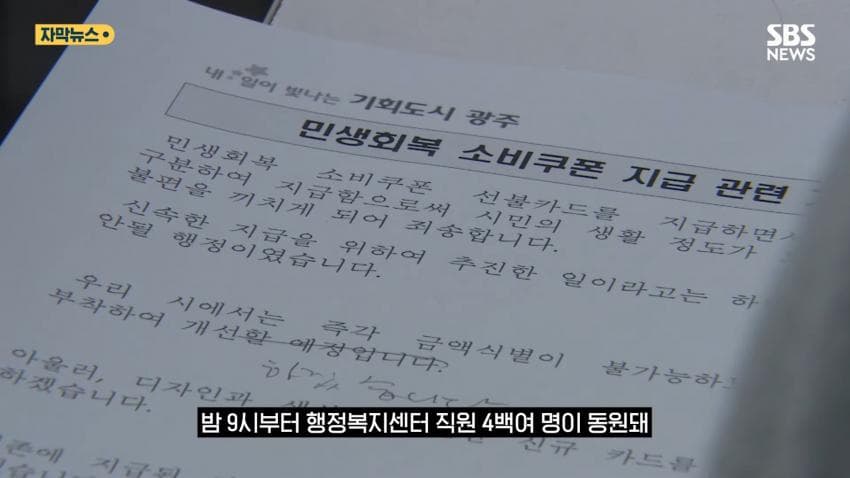 자막뉴스
SBS
NEWS
내☆일이 빛나는 기회도시 광주
민생회복 소비쿠폰 지급 관련
민생회복 소비쿠폰 선불카드를 지급하면서
구분하여 지급함으로써 시민의 생활 정도가
불편을 끼치게 되어 죄송합니다.
신속한 지급을 위하여 추진한 일이라고는 하
안될 행정이었습니다.
우리 시에서는 즉각 금액식별이 불가능하
부착하여 개선할 예정입니다.
아울러, 디자인과 신규 카드를
하겠습니다.
존에 지급된
밤 9시부터 행정복지센터 직원 4백여 명이 동원돼